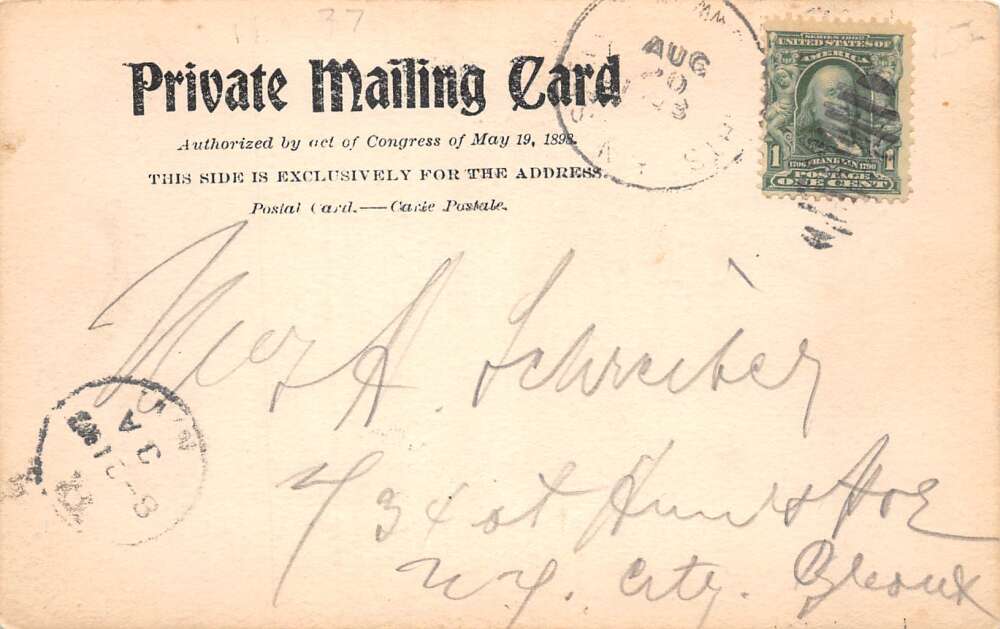 27
Private Mailing Card
Authorized by act of Congress of May 19, 1898.
THIS SIDE IS EXCLUSIVELY FOR THE ADDRESS.
Postal Card.—Carte Postale.
AUG
20
SERIES 1902
UNITED STATES OF
AMERICA
1 1706 FRANKLIN 1790 1
POSTAGE
ONE CENT
A. Schreiber
734 St
N.Y. City.
8-21
3 A